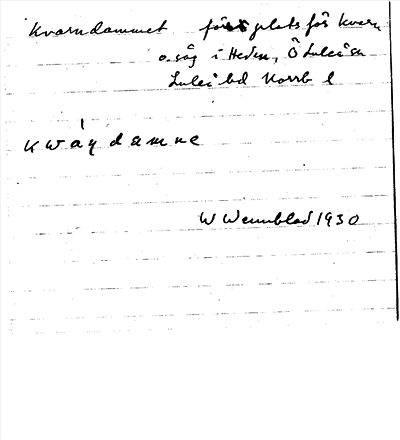 Kvarndammet förr plats för kvarn
o. såg i Heden, Ö Luleå sn
Luleå bd Norrb l
K w á ṇ d a m n e
W Wennblad 1930